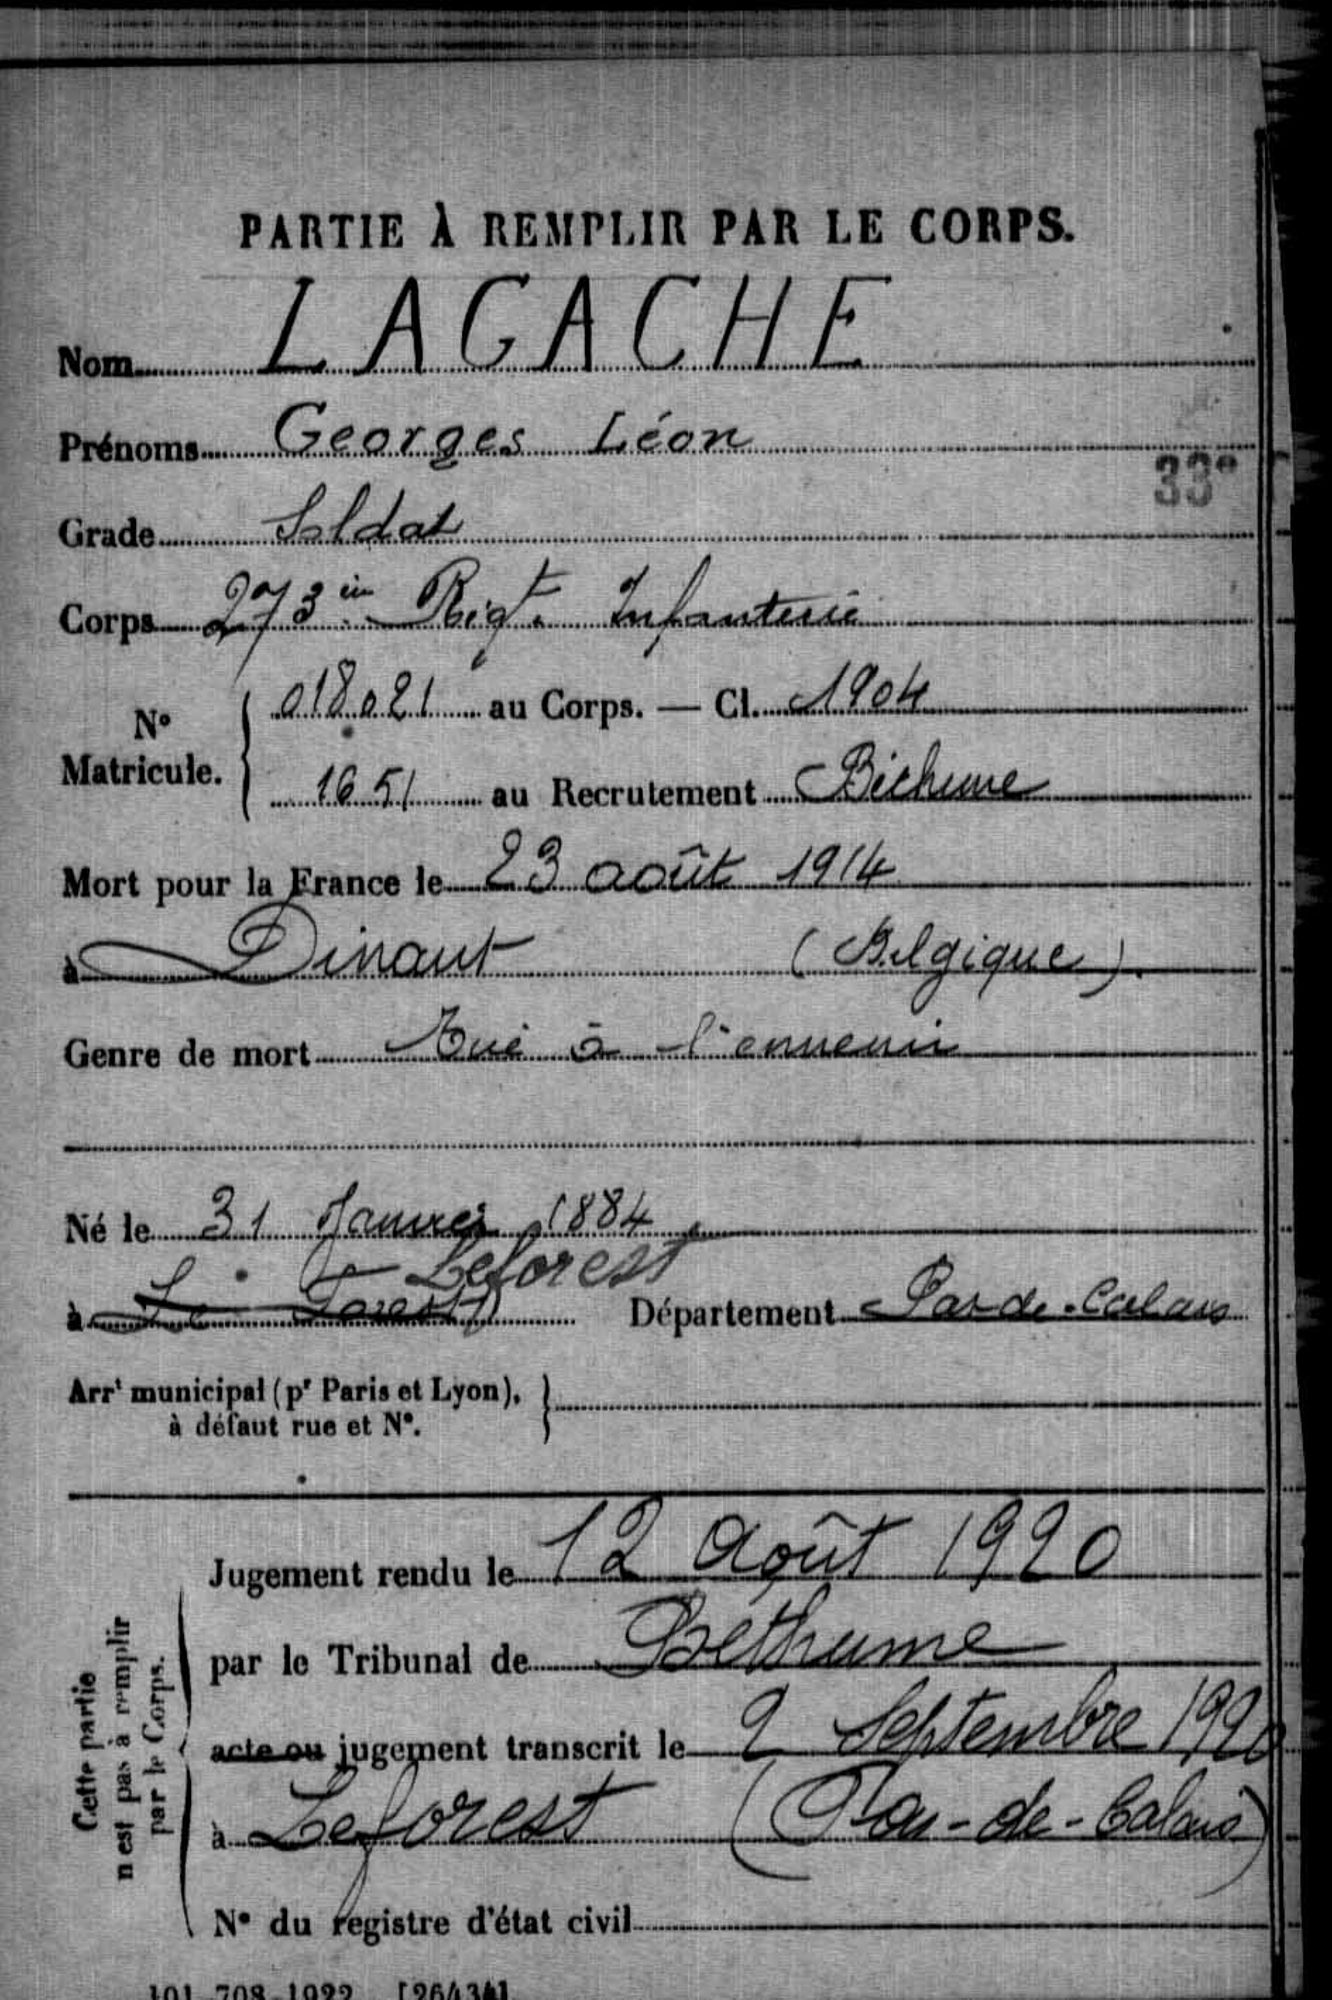 PARTIE À REMPLIR PAR LE CORPS.
Nom LAGACHE
Prénoms Georges Léon
33e
Grade Soldat
Corps 273 ém Rigt. Infanterie
N° Matricule. 018021 au Corps. — Cl. 1904
1651 au Recrutement Béthune
Mort pour la France le 23 août 1914
à Dinant (Belgique).
Genre de mort Tué à l'ennemi
Né le 31 Janvier 1884
Leforest
à Le Forest Département Pas-de-Calais
Arrt municipal (pr Paris et Lyon),
à défaut rue et N°.
Jugement rendu le 12 Août 1920
par le Tribunal de Béthume
acte ou jugement transcrit le 2 Septembre 1920
à Leforest (Pas-de-Calais)
N° du registre d'état civil
Cette partie
n'est pas à remplir
par le Corps.
101-708-1922. [26434]